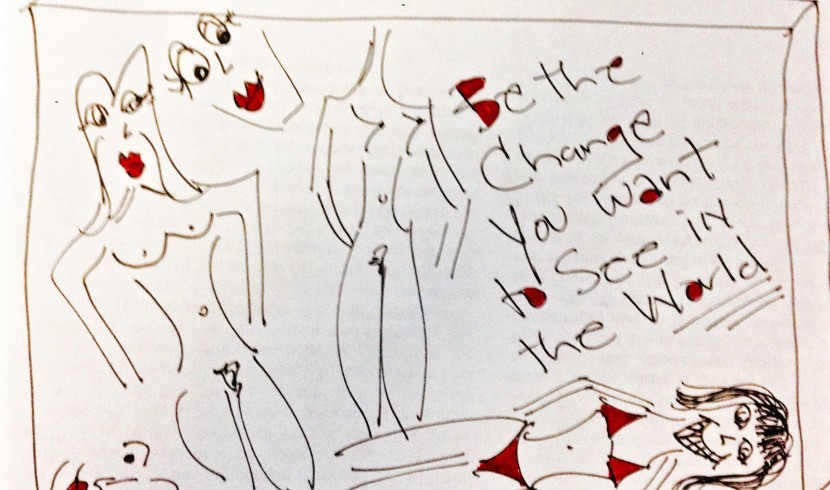 Be the
Change
You want
to See in
the World